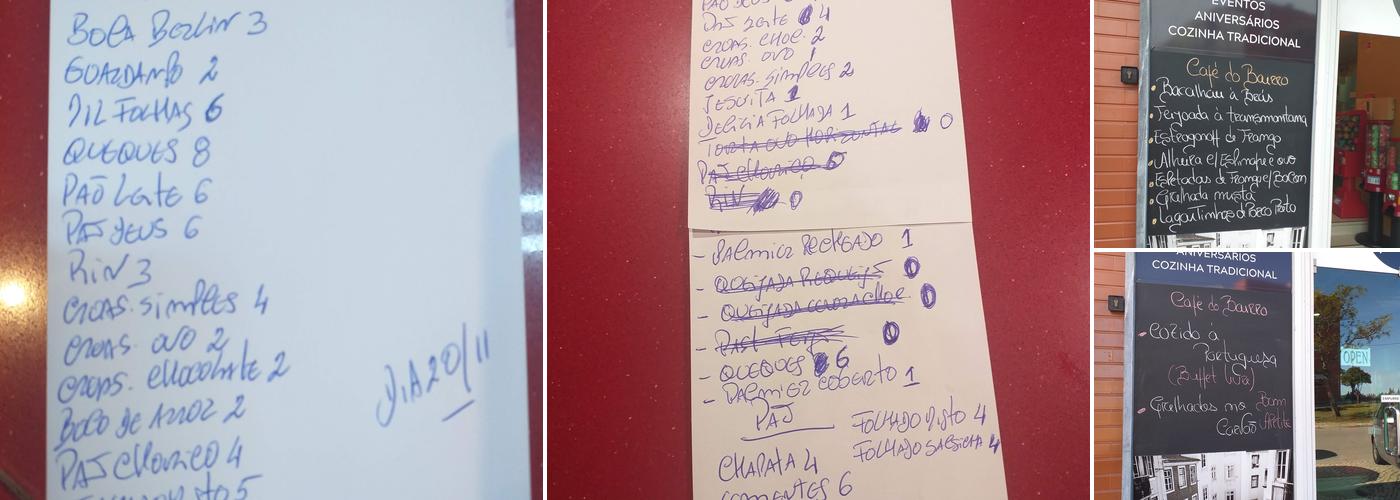 BOLA BERLIN 3
GUARDANAPO 2
MIL FOLHAS 6
QUEQUES 8
PAÕ LEITE 6
PAÕ DEUS 6
RIN 3
CROAS. SIMPLES 4
CROAS. OVO 2
CROAS. CHOCOLATE 2
BOLO DE ARROZ 2
PAÕ CHOURICO 4
FOLHADO MISTO 5
DIA 20/11
PAÕ DEUS
PAÕ LEITE 4
CROAS. CHOC. 2
CROAS. OVO 1
CROAS. SIMPLES 2
JESUITA 1
DELICIA FOLHADA 1
TORTA OVO HORIZONTAL 0
PAÕ CHOURICO 0
RIN 0
- PALMIER RECHEADO 1
- QUEIJADA REQUEIJÃO 0
- QUEIJADA 0
- 0
- QUEQUES 6
- PALMIER COBERTO 1
PAÕ
FOLHADO MISTO 4
FOLHADO SALSICHA 4
CHAPATA 4
6
EVENTOS
ANIVERSÁRIOS
COZINHA TRADICIONAL
Café do Bairro
Bacalhau à Brás
Feijoada à transmontana
Estrogonoff de Frango
Alheira c/ Espinafre e ovo
Espetadas de Frango c/ Bacon
Grelhada mista
Lagartinhos d Porco Preto
ANIVERSÁRIOS
COZINHA TRADICIONAL
Café do Bairro
Cozido à
Portuguesa
(Buffet livre)
Grelhados no
Carvão
Bom
Apetite
OPEN